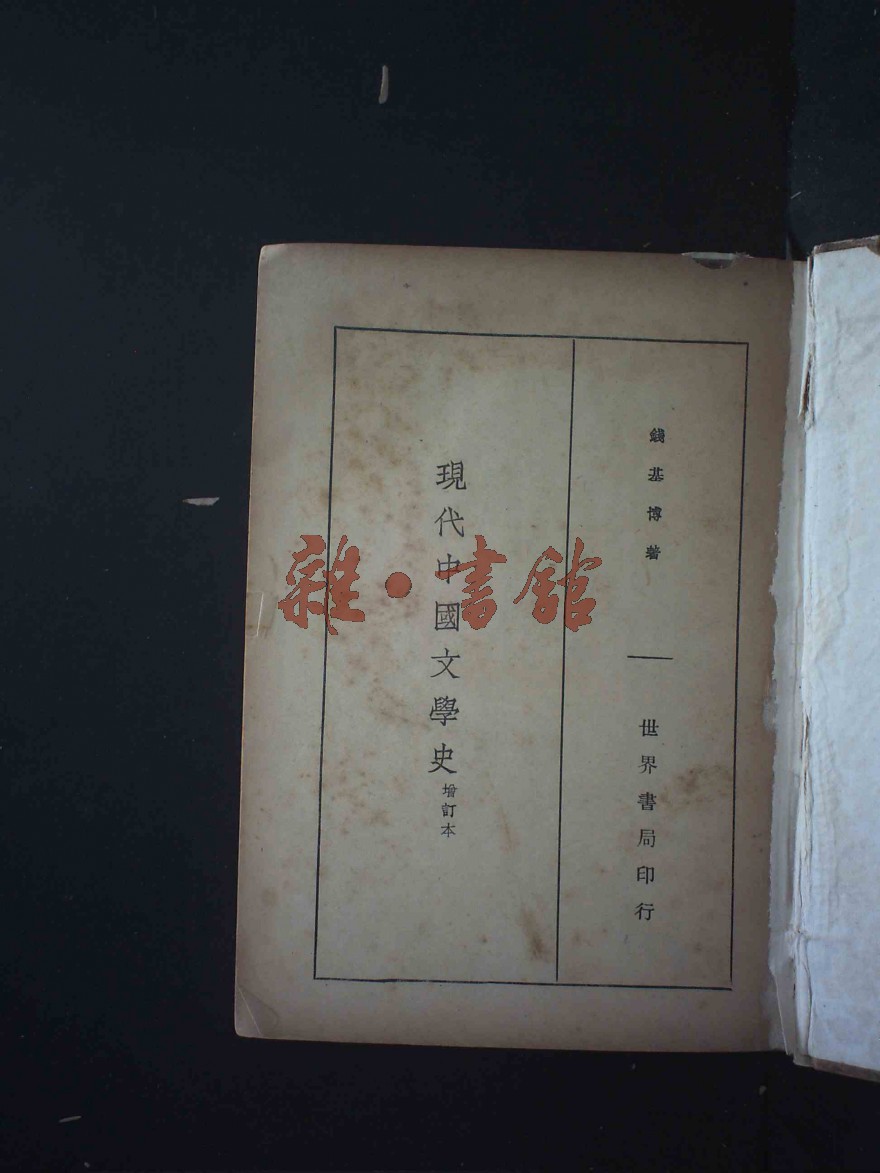 錢基博著
世界書局印行
現代中國文學史
增訂本
雜·書館